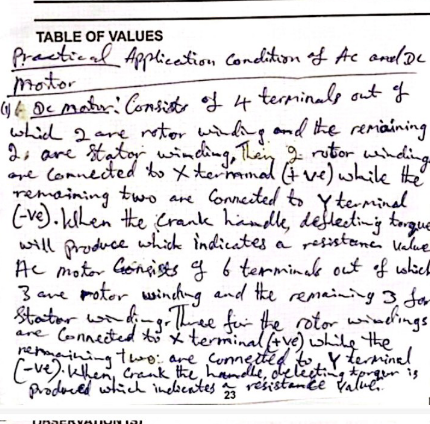 TABLE OF VALUES
Practical Application Condition of Ac and Dc
motor
(1) Dc motor: Consists of 4 terminals out of
which 2 are rotor winding and the remaining
2, are stator winding, Then 2 rotor winding
are Connected to X terminal (+ve) while the
remaining two are Connected to Y terminal
(-ve). When the Crank handle, deflecting torque
will produce which indicates a resistance value
Ac motor Consists of 6 terminals out of which
3 are rotor winding and the remaining 3 for
Stator winding. Three for the rotor windings
are Connected to X terminal (+ve) while the
remaining two are connected to Y terminal
(-ve). When, Crank the handle, deflecting torque is
produced which indicates a resistance value.
23